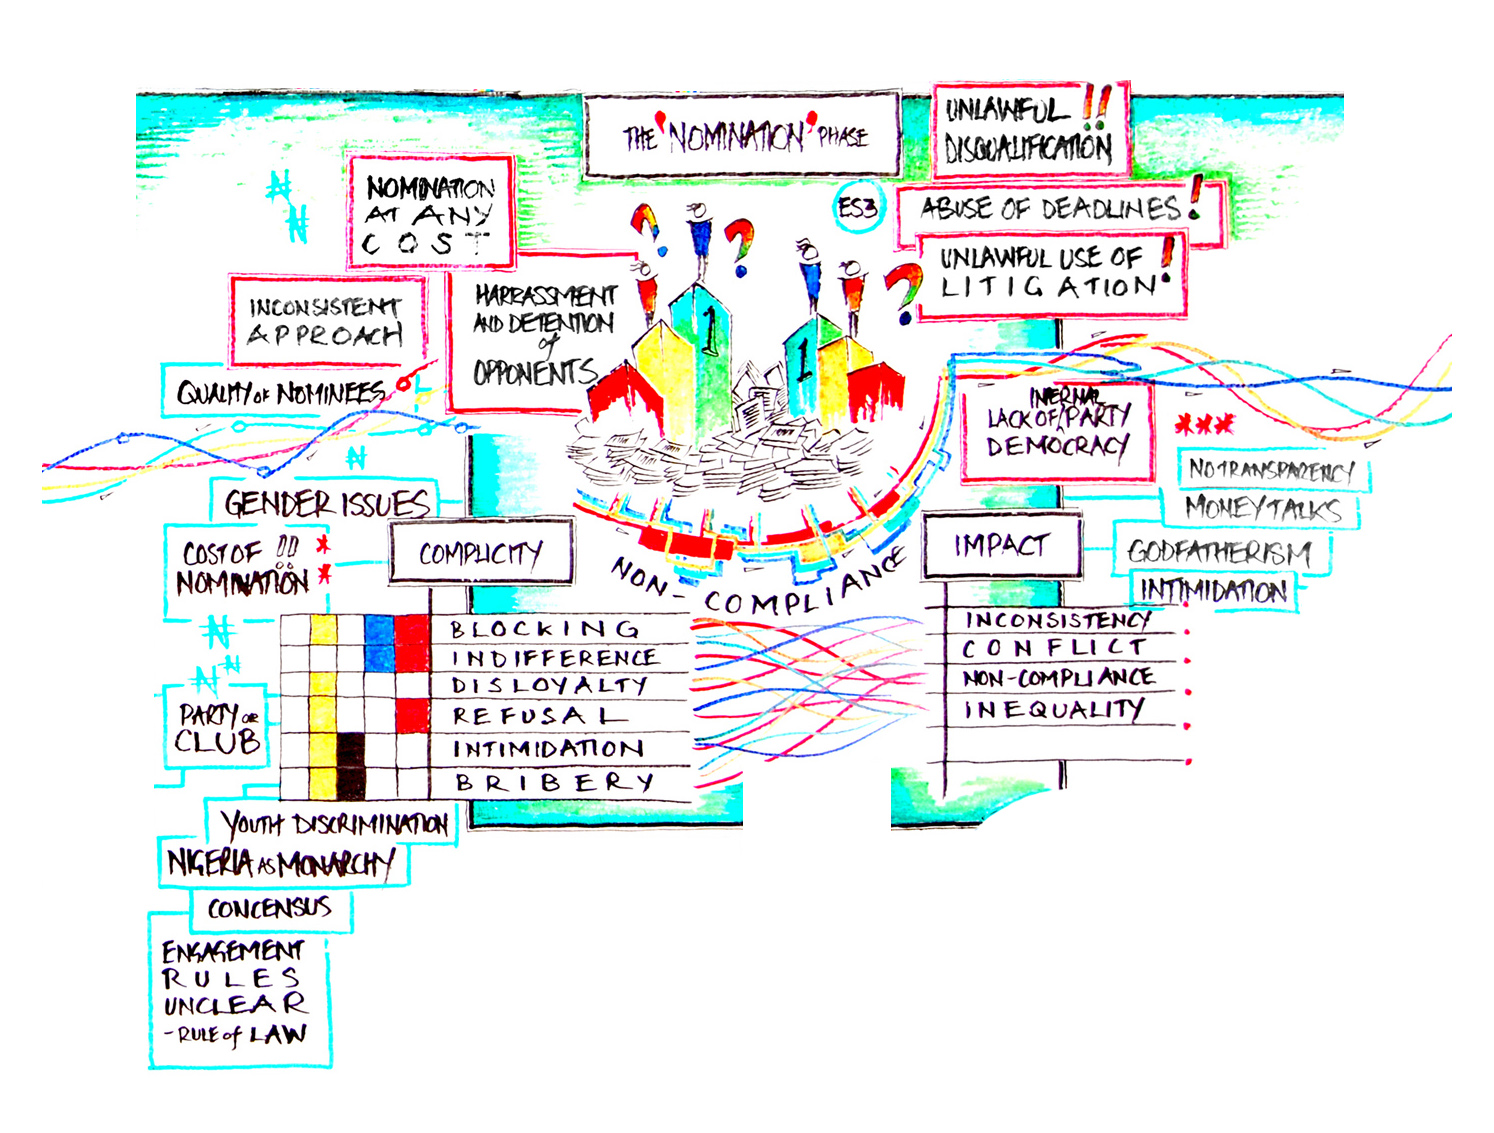 THE 'NOMINATION' PHASE
UNLAWFUL !!
DISQUALIFICATION
ES3
ABUSE OF DEADLINES!
UNLAWFUL USE OF !
LITIGATION
NOMINATION
AT ANY
COST
₦
₦
INCONSISTENT
APPROACH
HARRASSMENT
AND DETENTION
of
OPPONENTS
? ? ?
1 1
QUALITY OF NOMINEES
₦
GENDER ISSUES
COST OF !! *
NOMINATION *
₦
₦ ₦
PARTY OR
CLUB
YOUTH DISCRIMINATION
NIGERIA AS MONARCHY
CONCENSUS
ENGAGEMENT
RULES
UNCLEAR
- RULE of LAW
COMPLICITY
BLOCKING
INDIFFERENCE
DISLOYALTY
REFUSAL
INTIMIDATION
BRIBERY
NON-COMPLIANCE
INTERNAL
LACK OF PARTY
DEMOCRACY
***
NO TRANSPARENCY
MONEY TALKS
GODFATHERISM
INTIMIDATION
IMPACT
INCONSISTENCY
CONFLICT
NON-COMPLIANCE
INEQUALITY